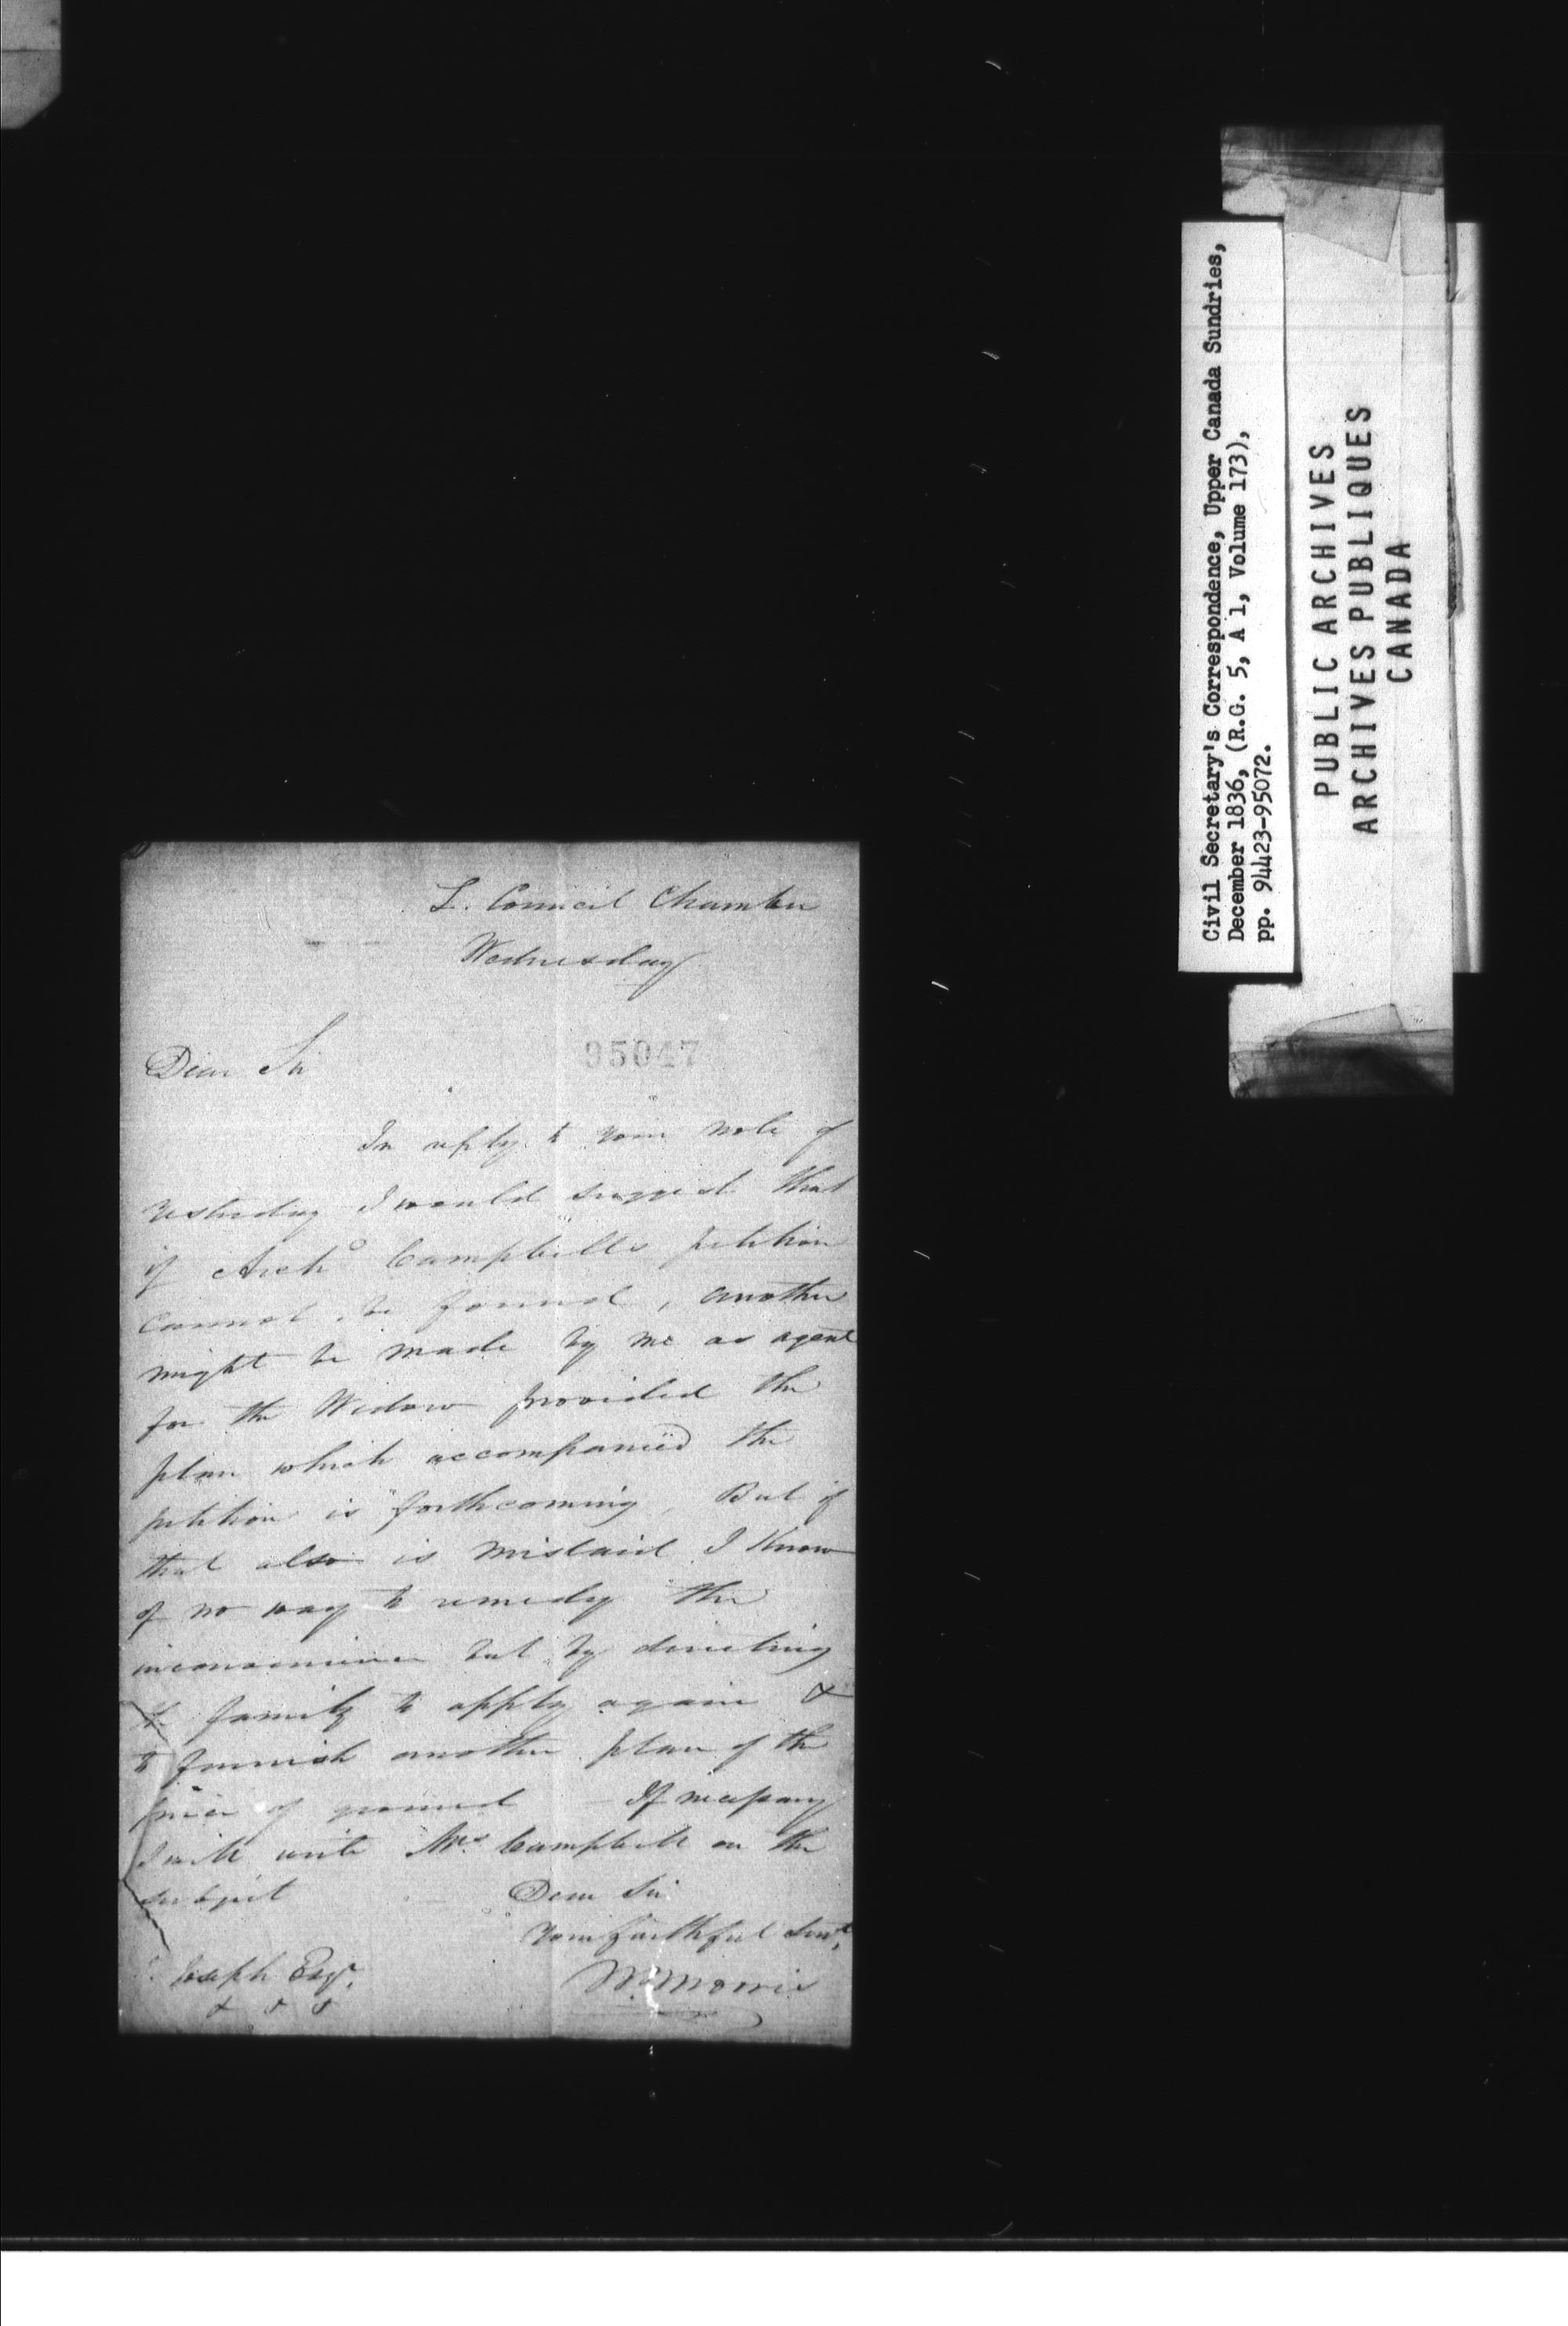 L. Council Chamber
Wednesday
95047
Dear Sir
In reply to your note of
yesterday I would suggest that
if Archd Campbells petition
cannot be found, another
might be made by me as agent
for the Widow provided the
plan which accompanied the
petition is forthcoming. But if
that also is mislaid I know
of no way to remedy the
inconvenience but by directing
the family to apply again &
to furnish another plan of the
piece of ground – If necessary
I will write Mrs. Campbell on the
subject
Dear Sir
Your faithful Servt,
Wm Morris
Joseph Esqr.
& & &
Civil Secretary's Correspondence, Upper Canada Sundries,
December 1836, (R.G. 5, A 1, Volume 173),
pp. 94423-95072.
PUBLIC ARCHIVES
ARCHIVES PUBLIQUES
CANADA